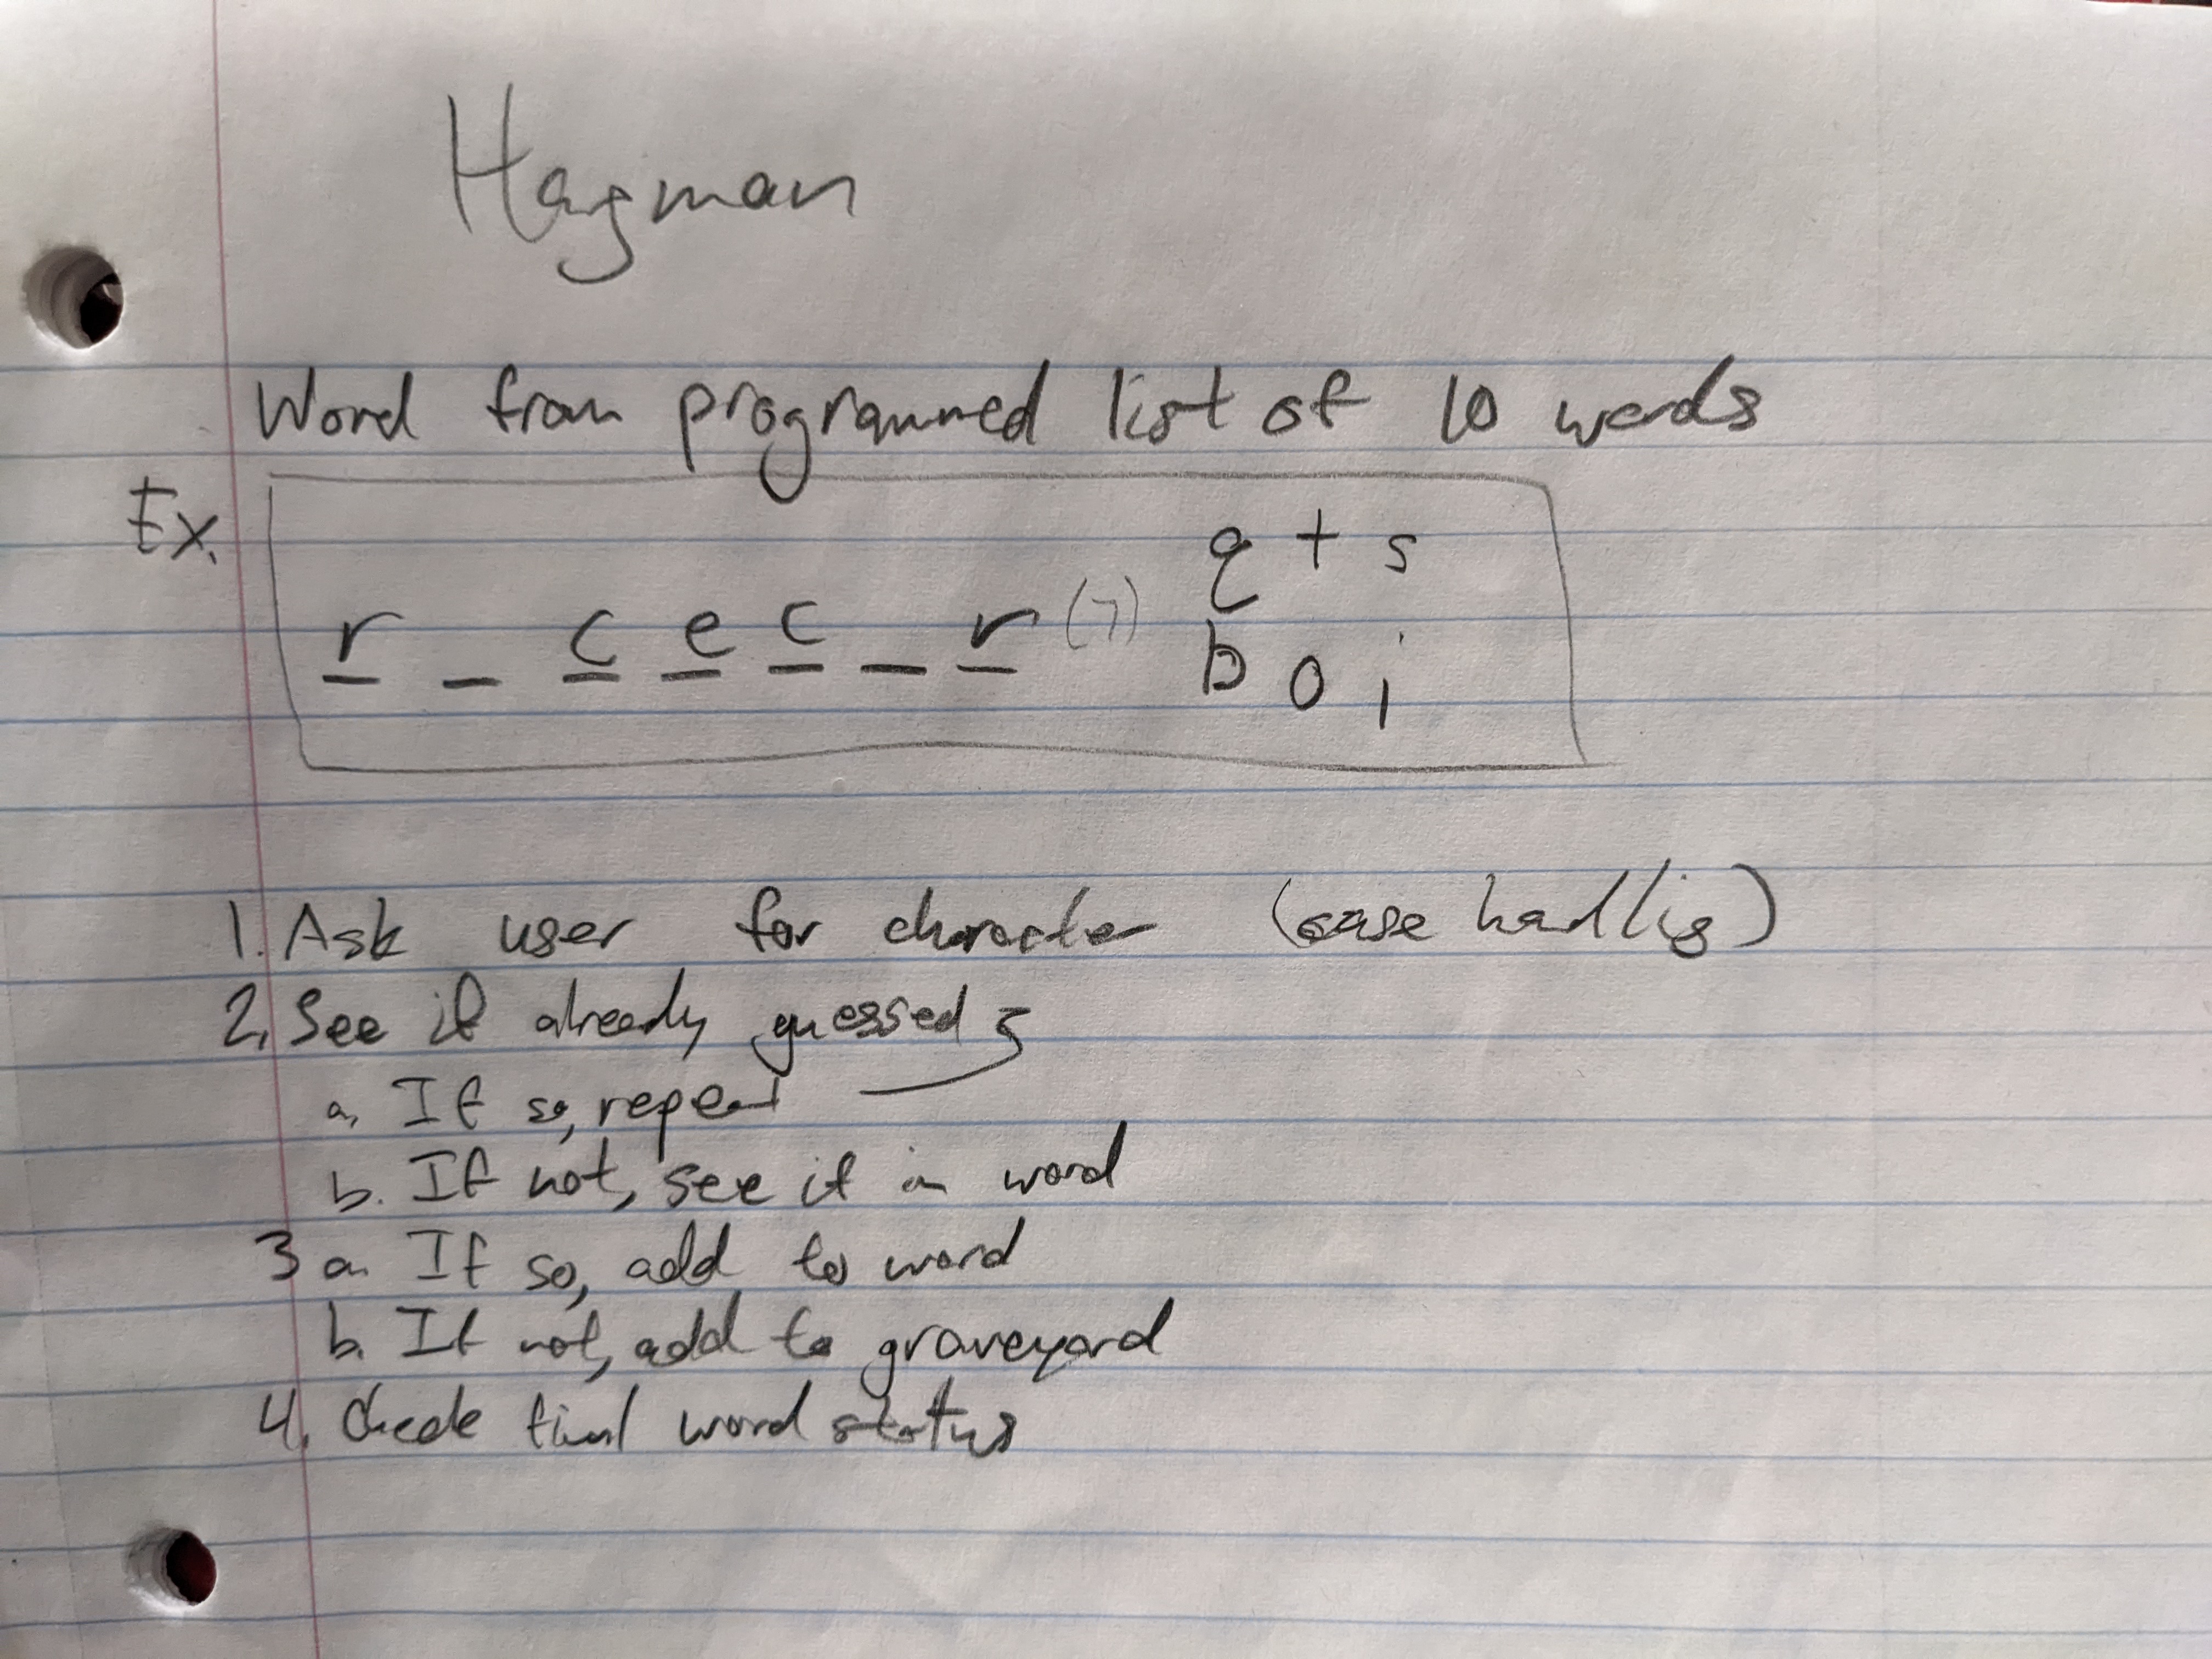 Hagman
Word from programmed list of 10 words
Ex.
q t s
r _ c e c _ r (7)
b o i
1. Ask user for character (case handlig)
2. See if already guessed
a. If so, repeat
b. If not, see if in word
3 a. If so, add to word
b. If not, add to graveyard
4. Check final word status